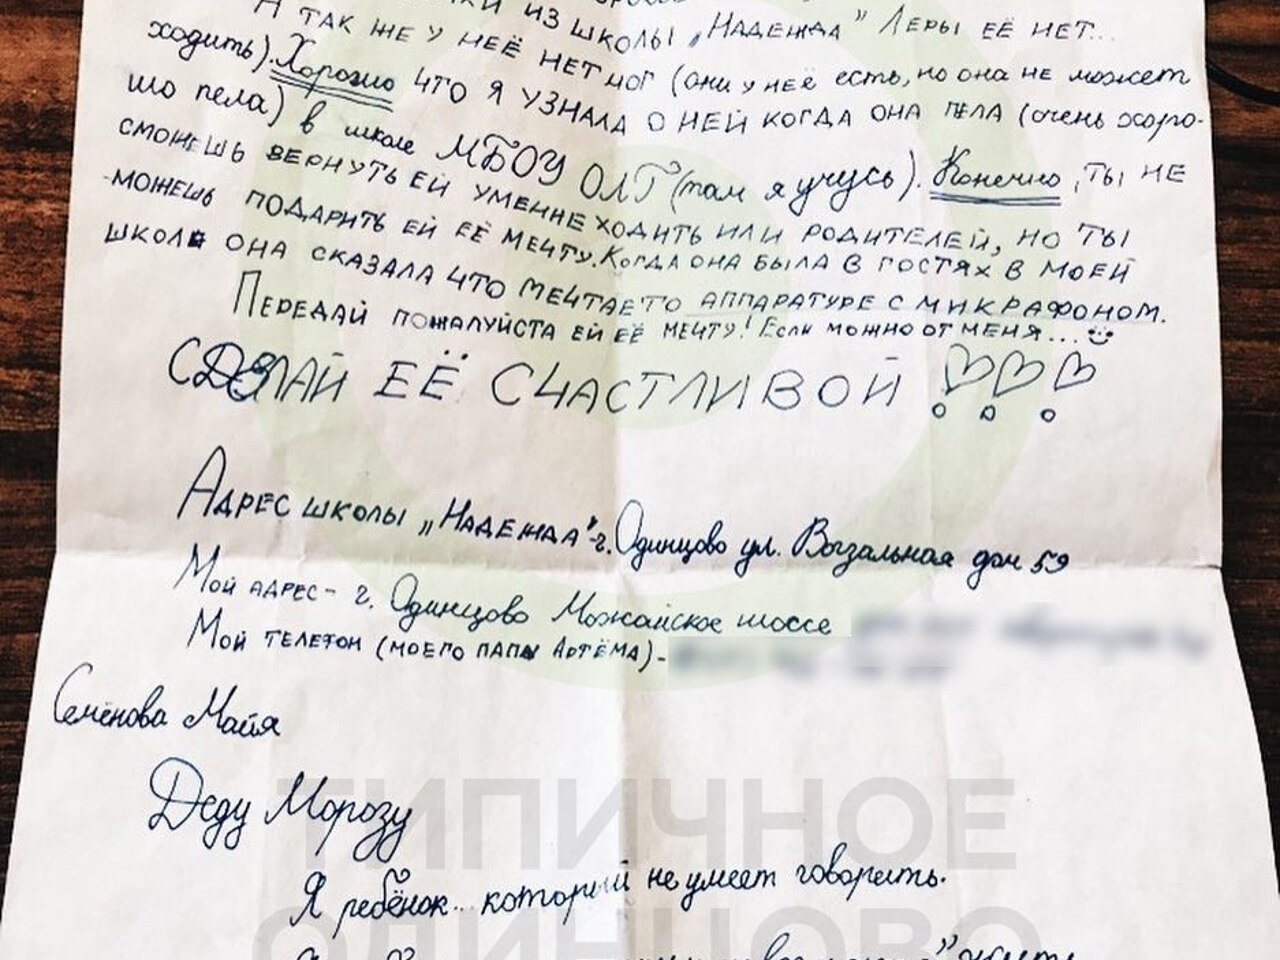 ИЗ ШКОЛЫ „НАДЕЖДА" ЛЕРЫ ЕЁ НЕТ...
А ТАК ЖЕ У НЕЁ НЕТ НОГ (они у неё есть, но она не может
ходить). Хорошо ЧТО Я УЗНАЛА О НЕЙ КОГДА ОНА ПЕЛА (очень хоро-
шо пела) в школе МБОУ ОЛГ (там я учусь). Конечно, ТЫ НЕ
СМОЖЕШЬ ВЕРНУТЬ ЕЙ УМЕНИЕ ХОДИТЬ ИЛИ РОДИТЕЛЕЙ, НО ТЫ
МОЖЕШЬ ПОДАРИТЬ ЕЙ ЕЁ МЕЧТУ. КОГДА ОНА БЫЛА В ГОСТЯХ В МОЕЙ
ШКОЛЕ ОНА СКАЗАЛА ЧТО МЕЧТАЕТ О АППАРАТУРЕ С МИКРАФОНОМ.
ПЕРЕДАЙ ПОЖАЛУЙСТА ЕЙ ЕЁ МЕЧТУ! ЕСЛИ МОЖНО ОТ МЕНЯ...
СДЕЛАЙ ЕЁ СЧАСТЛИВОЙ !!!
АДРЕС ШКОЛЫ „НАДЕЖДА" - г. Одинцово ул. Вогзальная дом 59
МОЙ АДРЕС - г. Одинцово Можайское шоссе
МОЙ ТЕЛЕФОН (МОЕГО ПАПЫ АРТЁМА) -
Семёнова Майя
Деду Морозу
ТИПИЧНОЕ
Я ребёнок который не умеет говорить.
ОДИНЦОВО